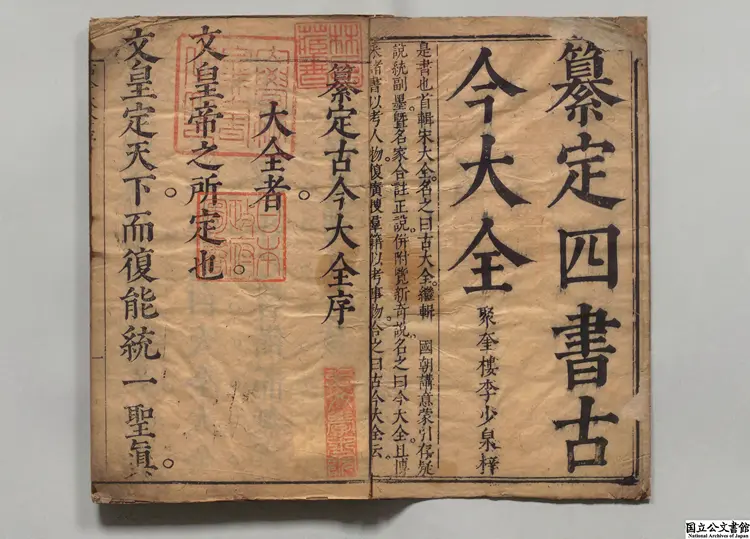 纂定四書古
今大全
聚奎樓李少泉梓
是書也首輯宋大全。名之曰古大全。繼輯 國朝講意蒙引存疑
說統副墨。暨名家合註正說。併附覽新奇說。名之曰今大全。且博
采諸書以考人物。復廣搜羣籍以考事物。合之曰古今大全云。
纂定古今大全序
大全者。
文皇帝之所定也。
文皇定天下。而復能統一聖眞。
林氏藏書
国立公文書館
National Archives of Japan